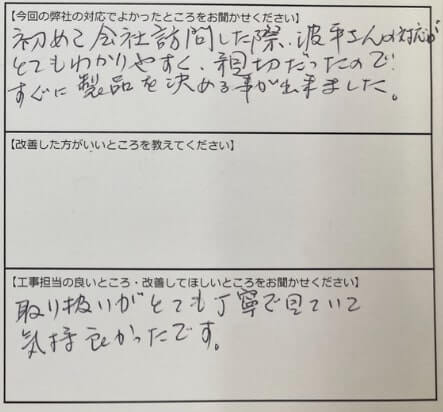 【今回の弊社の対応でよかったところをお聞かせください】
初めて会社訪問した際、波平さんの対応が
とてもわかりやすく、親切だったので
すぐに製品を決める事が出来ました。
【改善した方がいいところを教えてください】
【工事担当の良いところ・改善してほしいところをお聞かせください】
取り扱いがとても丁寧で見ていて
気持良かったです。